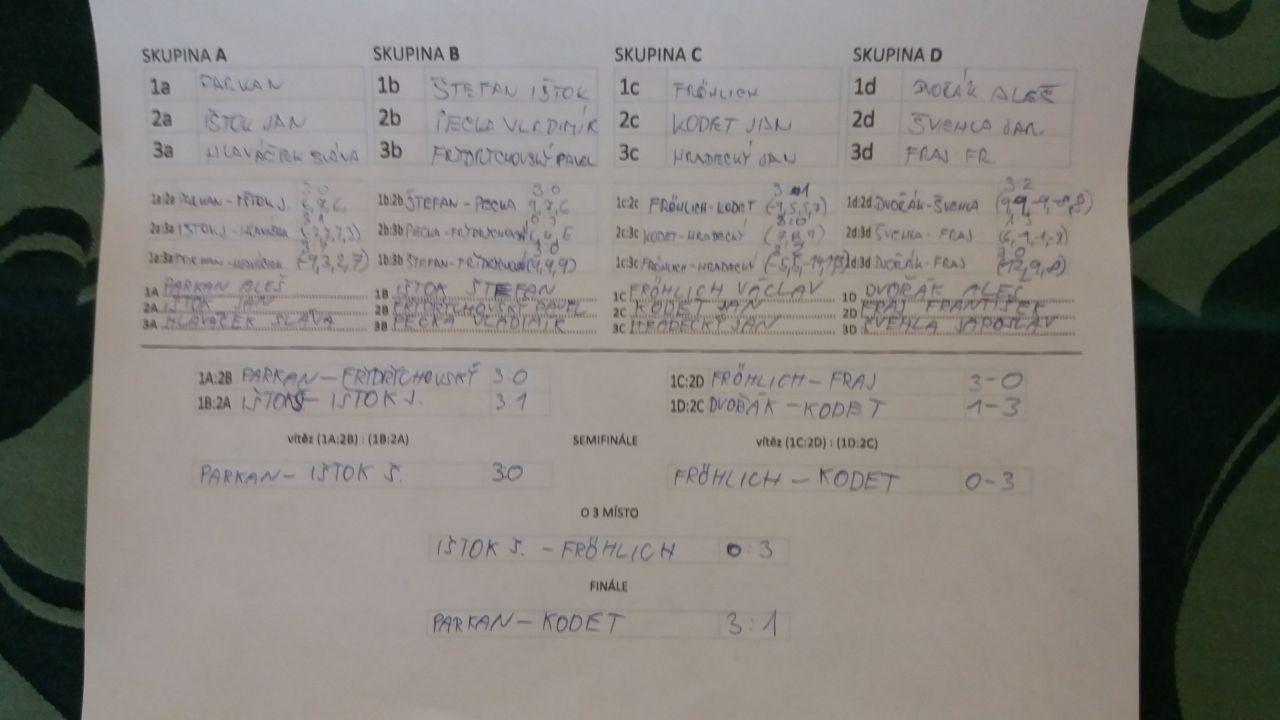 SKUPINA A SKUPINA B SKUPINA C SKUPINA D
1a PARKAN 1b ŠTEFAN IŠTOK 1c FRÖHLICH 1d DVOŘÁK ALEŠ
2a IŠTOK JAN 2b PECKA VLADIMÍR 2c KODET JAN 2d ŠVEHLA JAR.
3a HLAVÁČEK SLÁVA 3b FRYDRYCHOVSKÝ PAVEL 3c HRADECKÝ JAN 3d FRAJ FR.
3:0 3:0 3:1 3:2
1a:2a PARKAN - IŠTOK J. 1b:2b ŠTEFAN - PECKA 9,7,6 1c:2c FRÖHLICH - KODET (-9,5,5,7) 1d:2d DVOŘÁK - ŠVEHLA
2a:3a IŠTOK J. - HLAVÁČEK 2b:3b PECKA - FRYDRYCHOVSKÝ 2c:3c KODET - HRADECKÝ (7,8,9) 2d:3d ŠVEHLA - FRAJ
1a:3a PARKAN - HLAVÁČEK (-9,3,2,7) 1b:3b ŠTEFAN - FRYDRYCHOVSKÝ (9,9,9) 1c:3c FRÖHLICH - HRADECKÝ 1d:3d DVOŘÁK - FRAJ (12,9,8)
1A PARKAN ALEŠ 1B IŠTOK ŠTEFAN 1C FRÖHLICH VÁCLAV 1D DVOŘÁK ALEŠ
2A IŠTOK JAN 2B FRYDRYCHOVSKÝ PAVEL 2C KODET JAN 2D FRAJ FRANTIŠEK
3A HLAVÁČEK SLÁVA 3B PECKA VLADIMÍR 3C HRADECKÝ JAN 3D ŠVEHLA JAROSLAV
1A:2B PARKAN - FRYDRYCHOVSKÝ 3:0 1C:2D FRÖHLICH - FRAJ 3-0
1B:2A IŠTOK Š - IŠTOK J. 3:1 1D:2C DVOŘÁK - KODET 1-3
vítěz (1A:2B) : (1B:2A) SEMIFINÁLE vítěz (1C:2D) : (1D:2C)
PARKAN - IŠTOK Š. 3:0 FRÖHLICH - KODET 0-3
O 3 MÍSTO
IŠTOK Š. - FRÖHLICH 0:3
FINÁLE
PARKAN - KODET 3:1